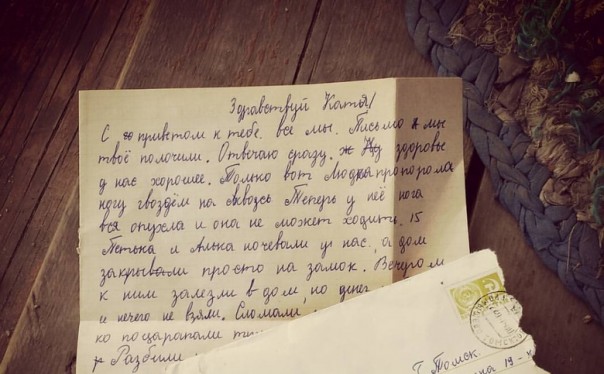 Здравствуй Катя!
С приветом к тебе все мы. Письмо мы
твоё получили. Отвечаю сразу. здоровье
у нас хорошее. Только вот Людка пропорола
ногу гвоздём на сквозь Теперь у неё нога
вся опухла и она не может ходить. 15
Петька и Алька ночевали у нас, а дом
закрывали просто на замок. Вечером
к ним залезли в дом, но денег
и нечего не взяли. Сломали
ко поцарапали
Разбили
Г. Томск.
19 -